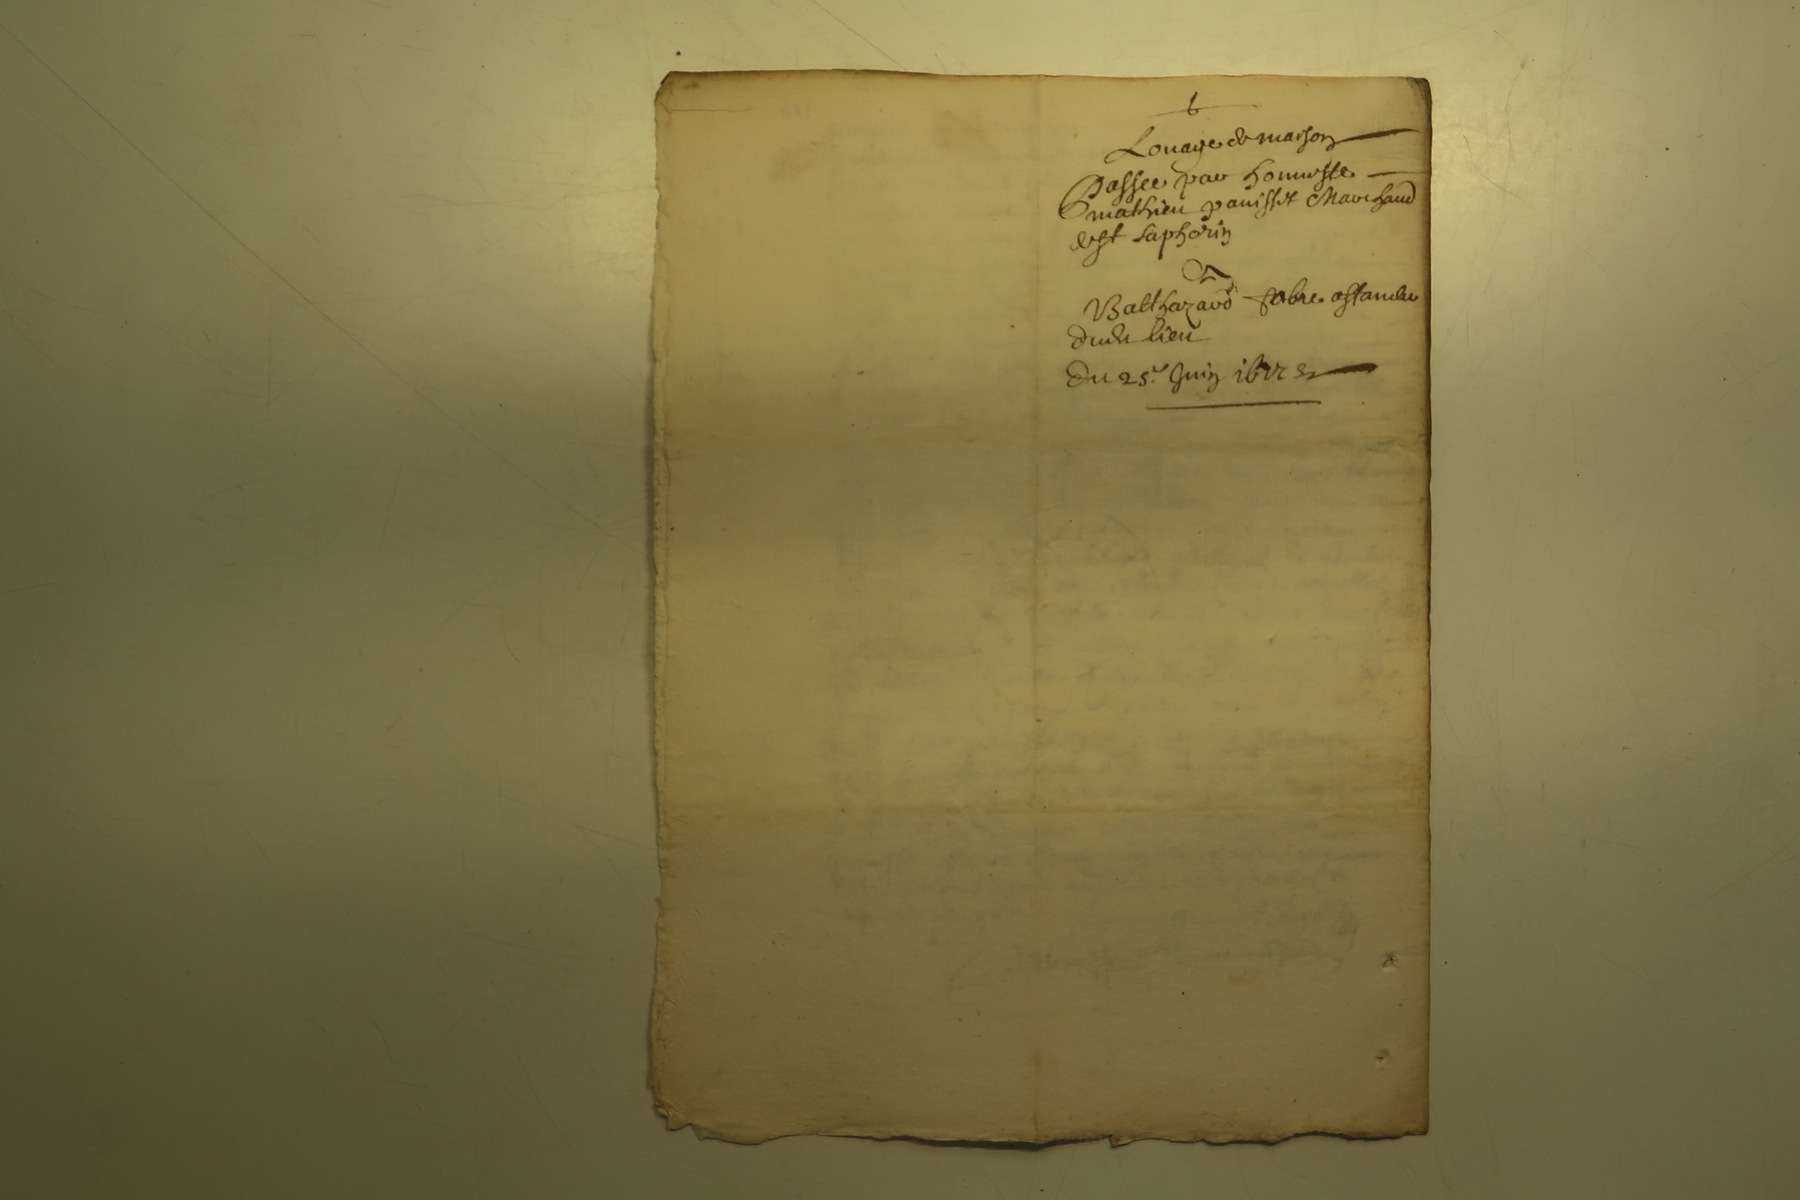 Louage de maison
Passee par honneste
mathieu panisset Marchand
de st saphorin
A
Balthazard fabre
dudit lieu
Du 25.e Juin 1677